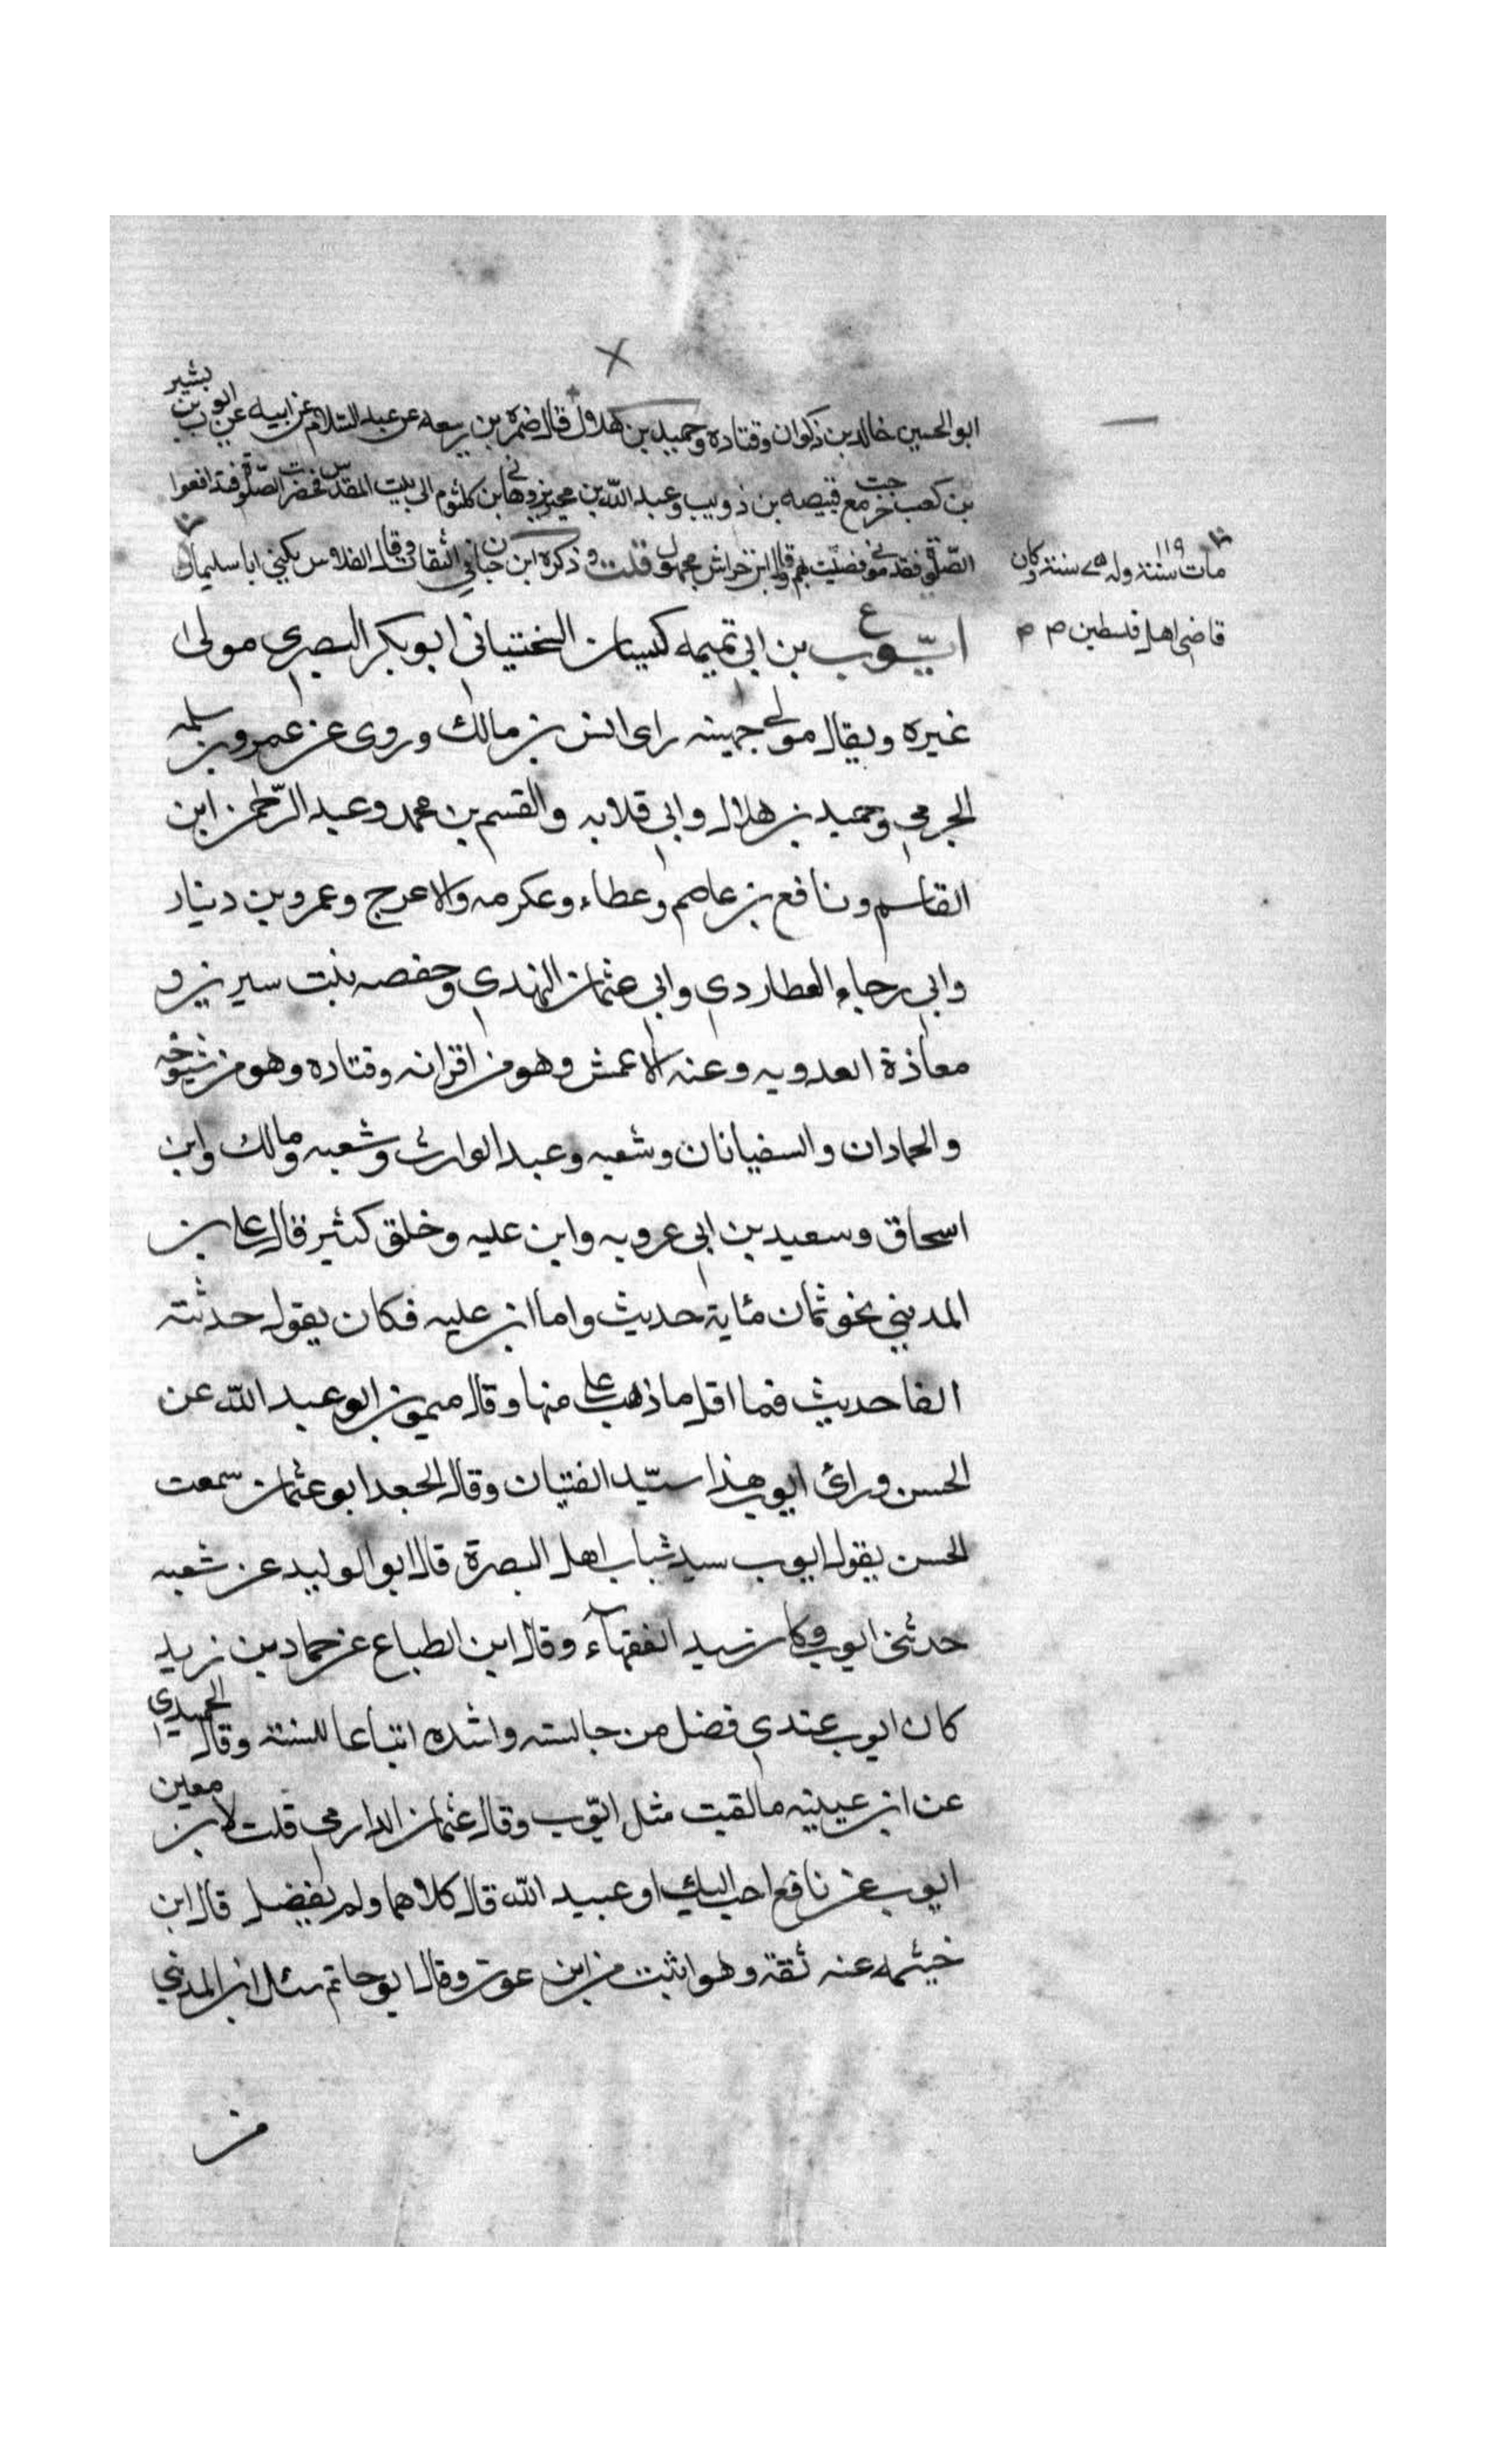 ابو الحسين خالد بن ذكوان وقتاده وحميد بن هلال قال ضمرة بن ربيعه عن عبد السلام عن ابيه عن ايوب بن بشير
بن كعب خرجت مع قبيصه بن ذويب وعبد الله بن محيريز وهاني بن كلثوم الى بيت المقدس فحضرت الصلوة فتدافعوا
الصلوة فقدموني فصليت بهم وقال ابن خراش مجهول قلت وذكره ابن حبان في الثقات وقال الفلاس يكنى ابا سليمان
مات سنة ١١٩ وله ٧٥ سنة وكان
قاضي اهل فلسطين صم
ع
ايّوب بن ابي تميمه كيسان السختياني ابو بكر البصري مولى
غيره ويقال مولى جهينه راى انس بن مالك وروى عن عمرو بن سلمه
الجرمي وحميد بن هلال وابي قلابه والقسم بن محمد وعبد الرّحمن ابن
القاسم ونافع بن عاصم وعطاء وعكرمه والاعرج وعمرو بن دينار
وابي رجاء العطاردي وابي عثمان النهدي وحفصه بنت سيرين و
معاذة العدويه وعنه الاعمش وهو من اقرانه وقتاده وهو من شيوخه
والحمادان والسفيانان وشعبه وعبد الوارث وشعبه ومالك وابن
اسحاق وسعيد بن ابي عروبه وابن عليه وخلق كثير قال علي بن
المديني نحو ثمان مئاية حديث واما ابن عليه فكان يقول حدثته
الفا حديث فما اقل ما ذهب علي منها وقال ميمون ابو عبد الله عن
الحسن ورائ ايوب هذا سيّد الفتيان وقال الجعد ابو عثمان سمعت
الحسن يقول ايوب سيد شباب اهل البصرة قال ابو الوليد عن شعبه
حدثني ايوب وكان سيد الفقهآء وقال ابن الطباع عن حماد بن زيد
كان ايوب عندي فضل من جالسته واشده اتباعا للسنة وقال الحميدي
عن ابن عيينه ما لقيت مثل ايّوب وقال عثمان الدارمي قلت لابن معين
ايوب عن نافع احب اليك او عبيد الله قال كلاهما ولم يفضل قال ابن
خيثمه عنه ثقة وهو اثبت من ابن عون وقال ابو حاتم سئل ابن المديني
من